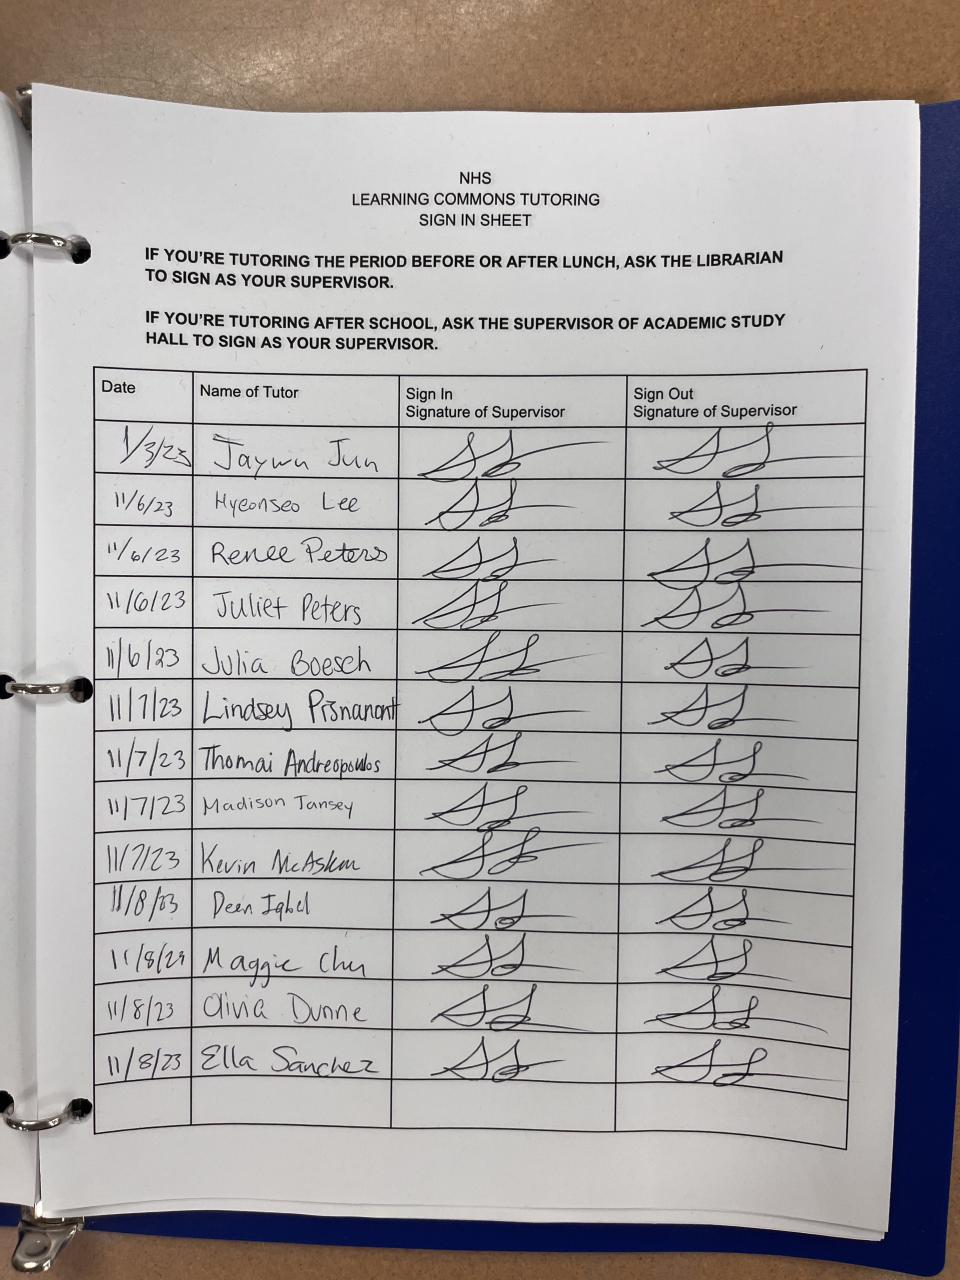 NHS
LEARNING COMMONS TUTORING
SIGN IN SHEET
IF YOU'RE TUTORING THE PERIOD BEFORE OR AFTER LUNCH, ASK THE LIBRARIAN
TO SIGN AS YOUR SUPERVISOR.
IF YOU'RE TUTORING AFTER SCHOOL, ASK THE SUPERVISOR OF ACADEMIC STUDY
HALL TO SIGN AS YOUR SUPERVISOR.
Date Name of Tutor Sign In Signature of Supervisor Sign Out Signature of Supervisor
1/3/23 Jaywn Jun
11/6/23 Hyeonseo Lee
11/6/23 Renee Peters
11/6/23 Juliet Peters
11/6/23 Julia Boesch
11/7/23 Lindsey Pisnanont
11/7/23 Thomai Andreopoulos
11/7/23 Madison Tansey
11/7/23 Kevin
11/8/23 Deen Iqbal
11/8/23 Maggie Chu
11/8/23 Olivia Dunne
11/8/23 Ella Sanchez